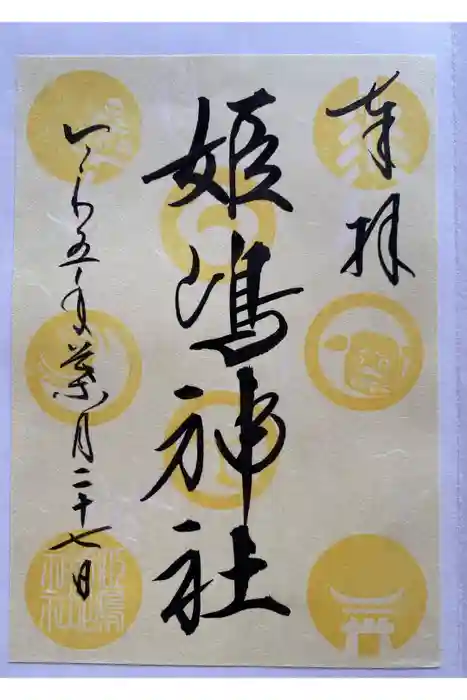 奉拝
姫嶋神社
令和五年葉月二十七日